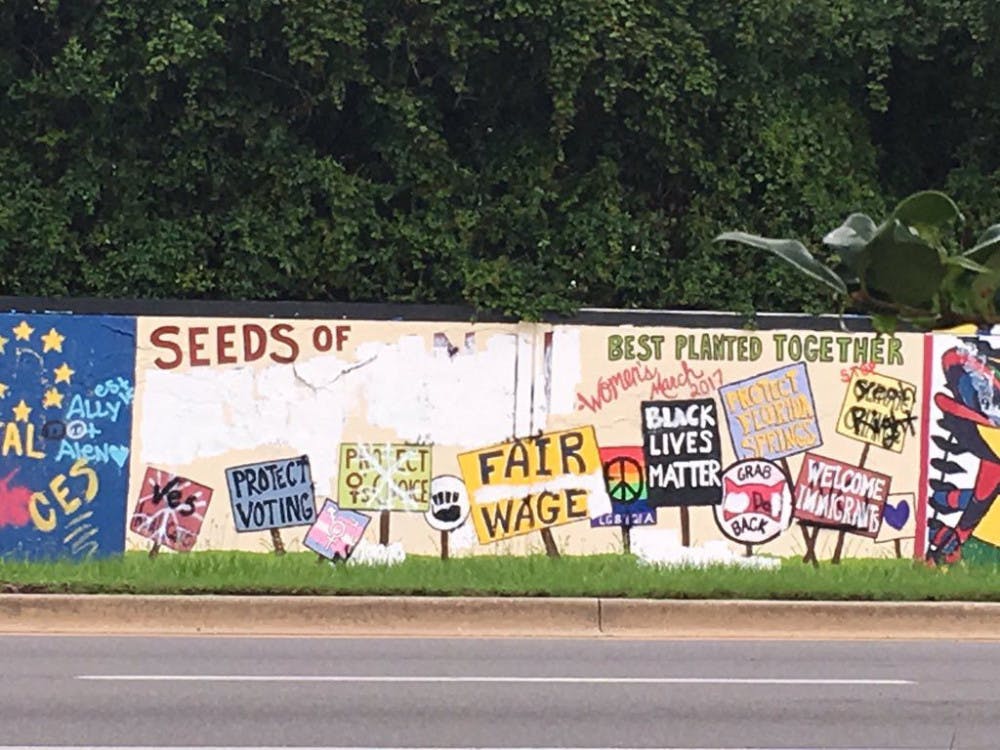 SEEDS OF
BEST PLANTED TOGETHER
WOMEN'S
March
2017
est
Ally
Alen
TAL
CES
Yes
PROTECT
VOTING
PROTECT
CHOICE
FAIR
WAGE
BLACK
LIVES
MATTER
PROTECT
FLORIDA
SPRINGS
GRAB
BACK
WELCOME
IMMIGRANTS
STOP